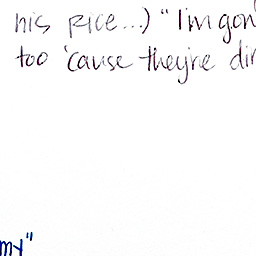 his rice...) "I'm gon
too 'cause they're dir
my"